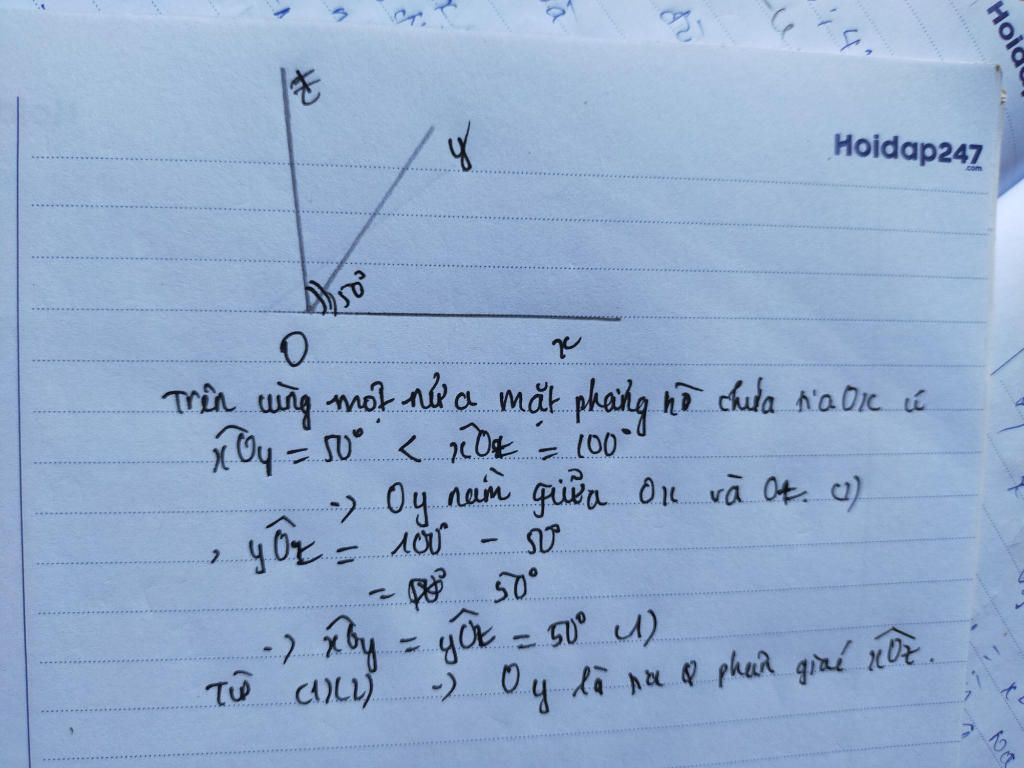 z
y
Hoidap247
.com
50°
O
x
Trên cùng một nửa mặt phẳng bờ chứa tia Ox có
xOy = 50° < xOz = 100°
-> Oy nằm giữa Ox và Oz. (1)
, yOz = 100° - 50°
= 50°
-> xOy = yOz = 50° (1)
Từ (1)(2) -> Oy là phân giác xOz.